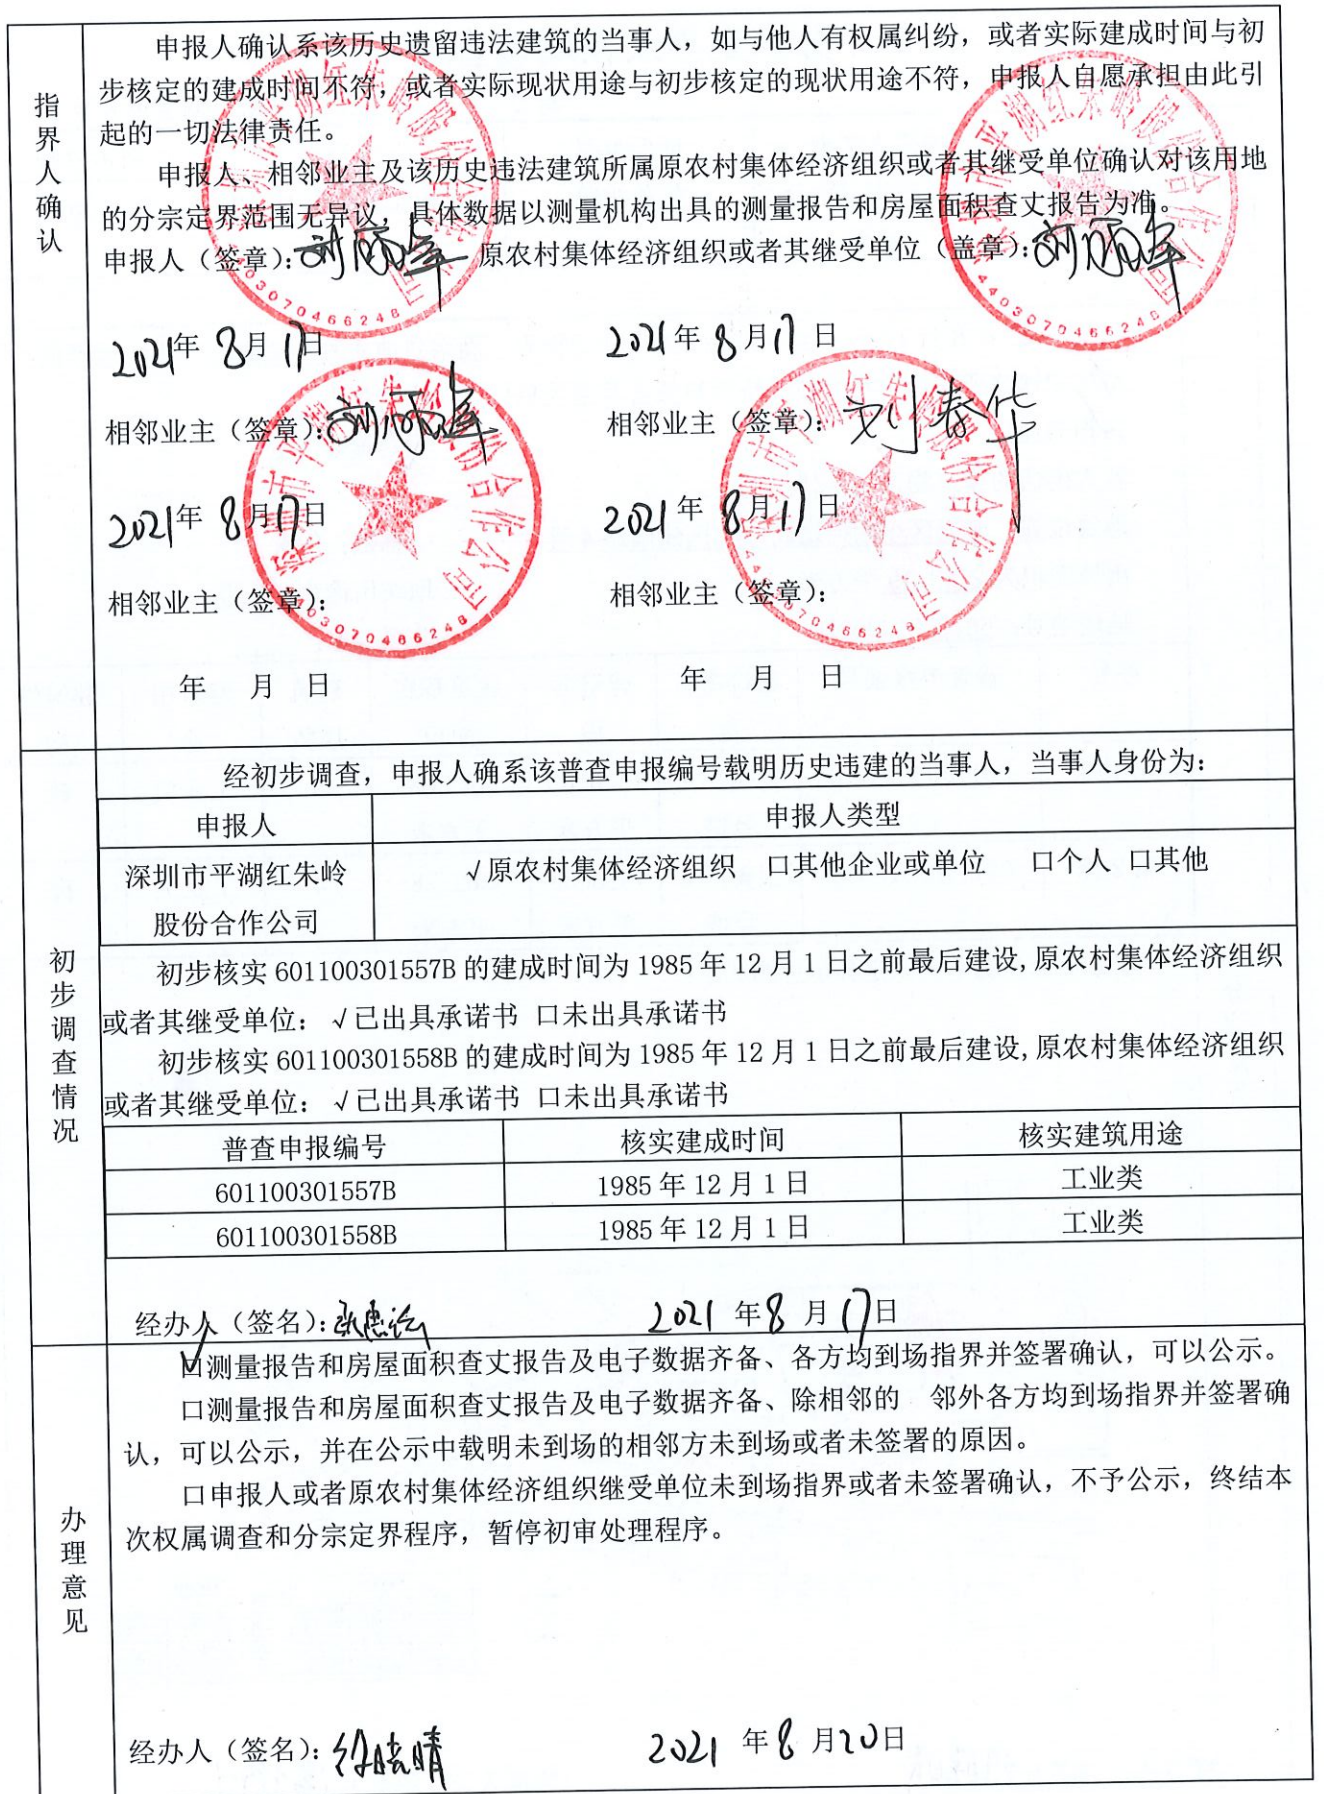 指界人确认
申报人确认系该历史遗留违法建筑的当事人，如与他人有权属纠纷，或者实际建成时间与初
步核定的建成时间不符，或者实际现状用途与初步核定的现状用途不符，申报人自愿承担由此引
起的一切法律责任。
申报人、相邻业主及该历史违法建筑所属原农村集体经济组织或者其继受单位确认对该用地
的分宗定界范围无异议，具体数据以测量机构出具的测量报告和房屋面积查丈报告为准。
申报人（签章）： 原农村集体经济组织或者其继受单位（盖章）：
2021年 8月 17日 2021年 8月17日
相邻业主（签章）： 相邻业主（签章）：刘春华
2021年 8月17日 2021年 8月17日
相邻业主（签章）： 相邻业主（签章）：
年 月 日 年 月 日
深圳市平湖红朱岭股份合作公司
4403070466248
深圳市平湖红朱岭股份合作公司
4403070466248
深圳市平湖红朱岭股份合作公司
4403070466248
深圳市平湖红朱岭股份合作公司
4403070466248
初步调查情况
经初步调查，申报人确系该普查申报编号载明历史违建的当事人，当事人身份为：
申报人 申报人类型
深圳市平湖红朱岭 √原农村集体经济组织 口其他企业或单位 口个人 口其他
股份合作公司
初步核实 601100301557B 的建成时间为 1985 年 12 月 1 日之前最后建设,原农村集体经济组织
或者其继受单位： √已出具承诺书 口未出具承诺书
初步核实 601100301558B 的建成时间为 1985 年 12 月 1 日之前最后建设,原农村集体经济组织
或者其继受单位： √已出具承诺书 口未出具承诺书
普查申报编号 核实建成时间 核实建筑用途
601100301557B 1985 年 12 月 1 日 工业类
601100301558B 1985 年 12 月 1 日 工业类
经办人（签名）： 2021 年8 月 17日
办理意见
☑测量报告和房屋面积查丈报告及电子数据齐备、各方均到场指界并签署确认，可以公示。
口测量报告和房屋面积查丈报告及电子数据齐备、除相邻的 邻外各方均到场指界并签署确
认，可以公示，并在公示中载明未到场的相邻方未到场或者未签署的原因。
口申报人或者原农村集体经济组织继受单位未到场指界或者未签署确认，不予公示，终结本
次权属调查和分宗定界程序，暂停初审处理程序。
经办人（签名）： 2021 年8 月20日